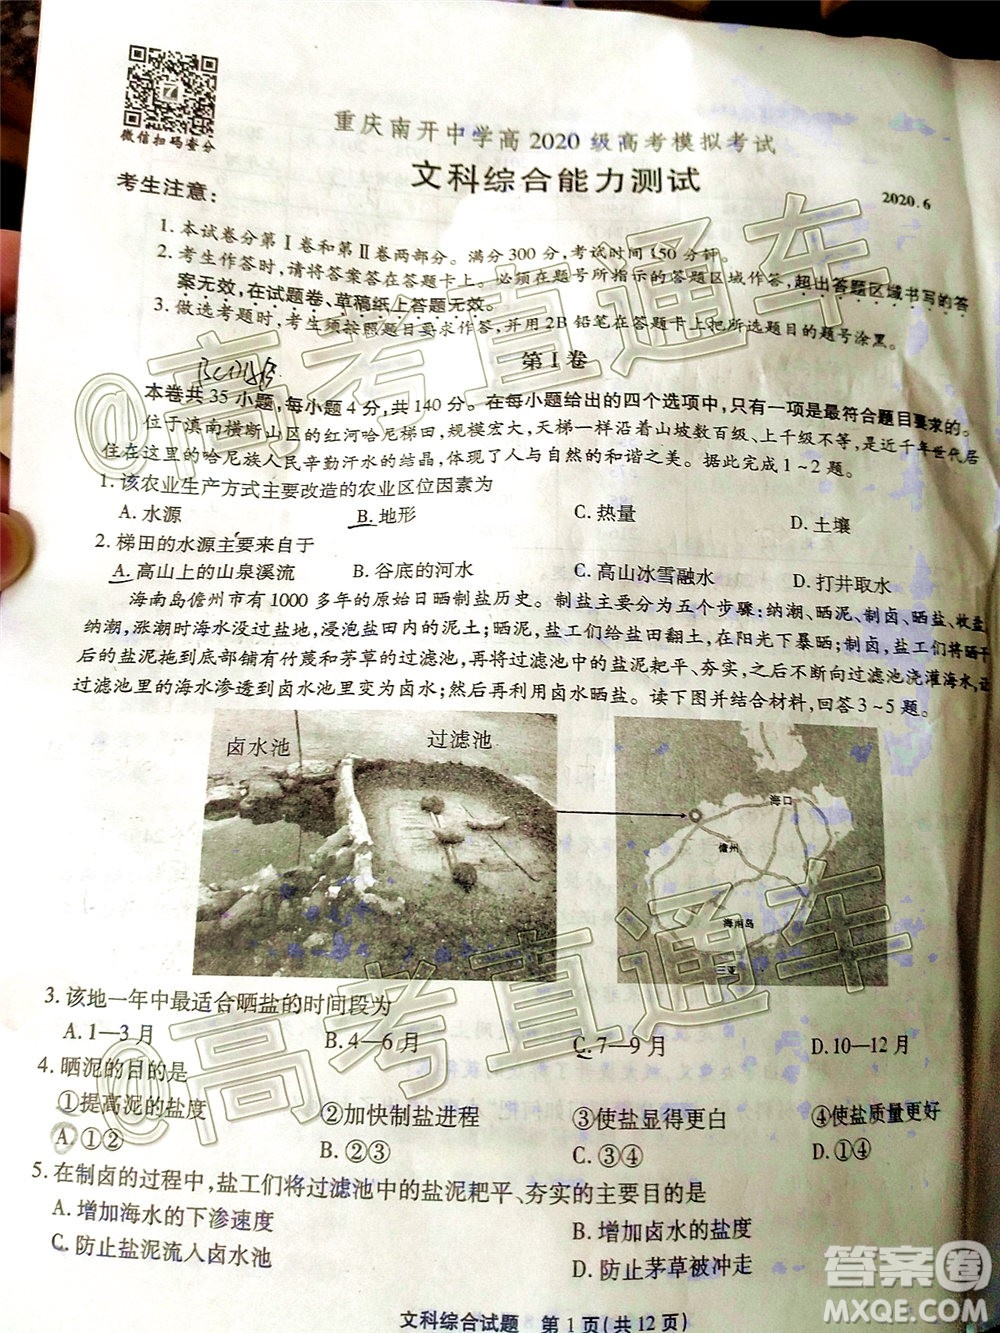 微信扫码查分
重庆南开中学高2020级高考模拟考试
文科综合能力测试
2020.6
考生注意：
1. 本试卷分第Ⅰ卷和第Ⅱ卷两部分。满分300分，考试时间150分钟。
2. 考生作答时，请将答案答在答题卡上。必须在题号所指示的答题区域作答，超出答题区域书写的答
案无效，在试题卷、草稿纸上答题无效。
3. 做选考题时，考生须按照题目要求作答，并用2B铅笔在答题卡上把所选题目的题号涂黑。
第Ⅰ卷
本卷共35小题，每小题4分，共140分。在每小题给出的四个选项中，只有一项是最符合题目要求的。
位于滇南横断山区的红河哈尼梯田，规模宏大，天梯一样沿着山坡数百级、上千级不等，是近千年世代居
住在这里的哈尼族人民辛勤汗水的结晶，体现了人与自然的和谐之美。据此完成1~2题。
1. 该农业生产方式主要改造的农业区位因素为
A. 水源 B. 地形 C. 热量 D. 土壤
2. 梯田的水源主要来自于
A. 高山上的山泉溪流 B. 谷底的河水 C. 高山冰雪融水 D. 打井取水
海南岛儋州市有1000多年的原始日晒制盐历史。制盐主要分为五个步骤：纳潮、晒泥、制卤、晒盐、收盐
纳潮，涨潮时海水没过盐地，浸泡盐田内的泥土；晒泥，盐工们给盐田翻土，在阳光下暴晒；制卤，盐工们将晒干
后的盐泥拖到底部铺有竹篾和茅草的过滤池，再将过滤池中的盐泥耙平、夯实，之后不断向过滤池浇灌海水，让
过滤池里的海水渗透到卤水池里变为卤水；然后再利用卤水晒盐。读下图并结合材料，回答3~5题。
卤水池 过滤池
海口
儋州
海南岛
三亚
3. 该地一年中最适合晒盐的时间段为
A. 1—3月 B. 4—6月 C. 7—9月 D. 10—12月
4. 晒泥的目的是
①提高泥的盐度 ②加快制盐进程 ③使盐显得更白 ④使盐质量更好
A. ①② B. ②③ C. ③④ D. ①④
5. 在制卤的过程中，盐工们将过滤池中的盐泥耙平、夯实的主要目的是
A. 增加海水的下渗速度 B. 增加卤水的盐度
C. 防止盐泥流入卤水池 D. 防止茅草被冲走
文科综合试题 第1页（共12页）
@高考直通车
@高考直通车
答案圈
MXQE.COM